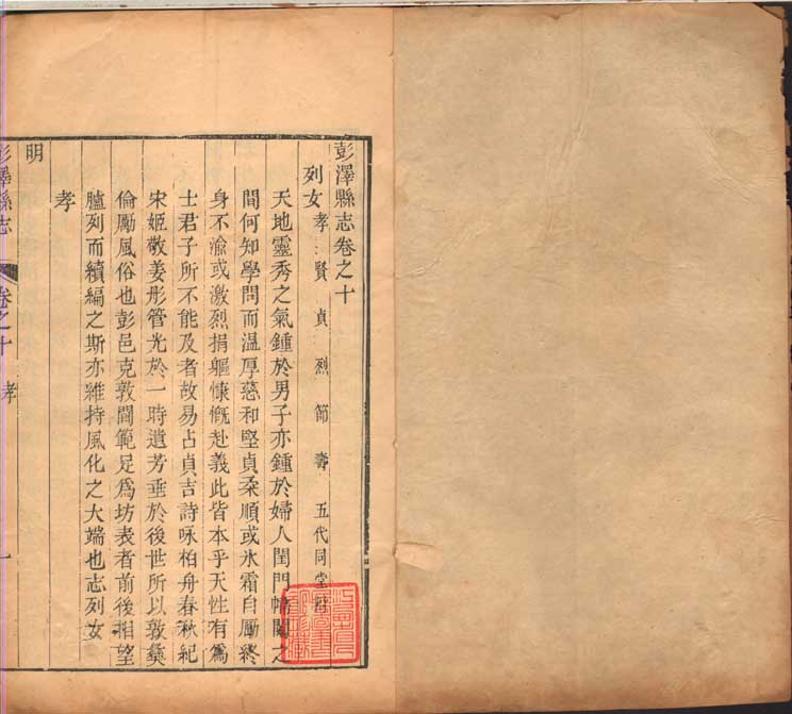 彭澤縣志卷之十
列女 孝 賢 貞 烈 節 壽 五代同堂附
天地靈秀之氣鍾於男子亦鍾於婦人閨門幃闥之
間何知學問而溫厚慈和堅貞柔順或氷霜自厲終
身不渝或激烈捐軀慷慨赴義此皆本乎天性有爲
士君子所不能及者故易占貞吉詩咏柏舟春秋紀
宋姬敬姜彤管光於一時遺芳垂於後世所以敦彝
倫勵風俗也彭邑克敦閫範足爲坊表者前後相望
臚列而續編之斯亦維持風化之大端也志列女
孝
明
彭澤縣志 卷之十 孝 一